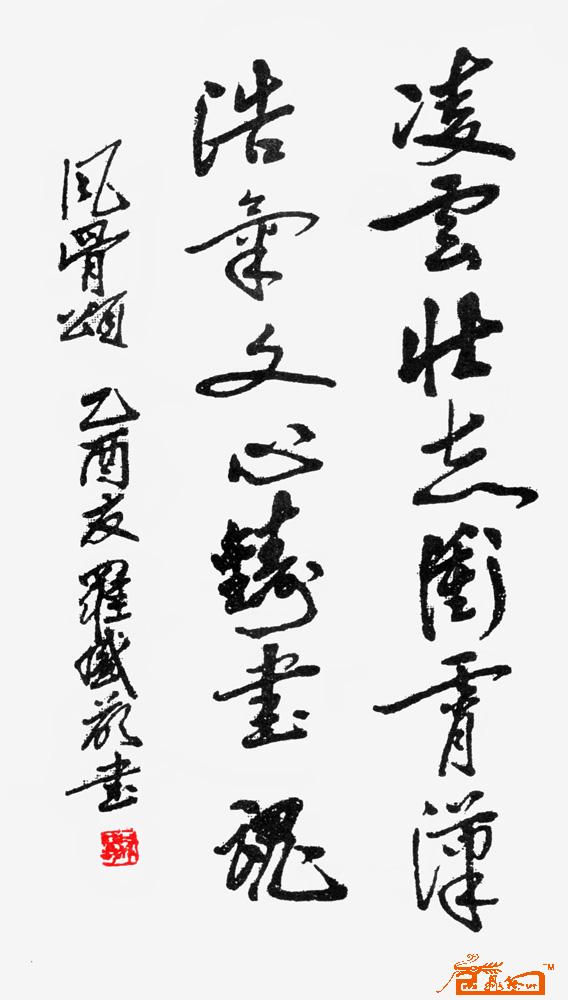 凌雲壯志衝霄漢
浩氣文心鑄書魂
风骨頌 乙酉夏 羅書